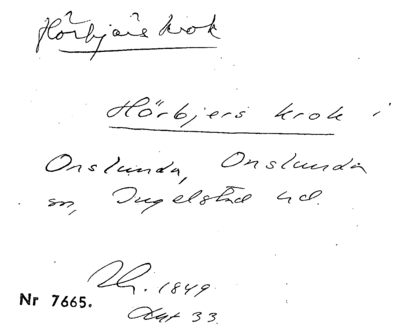 Hörbjärs krok
Hörbjers krok i
Onslunda, Onslunda
sn, Ingelstad hd.
1849
Nr 7665.
Akt 33